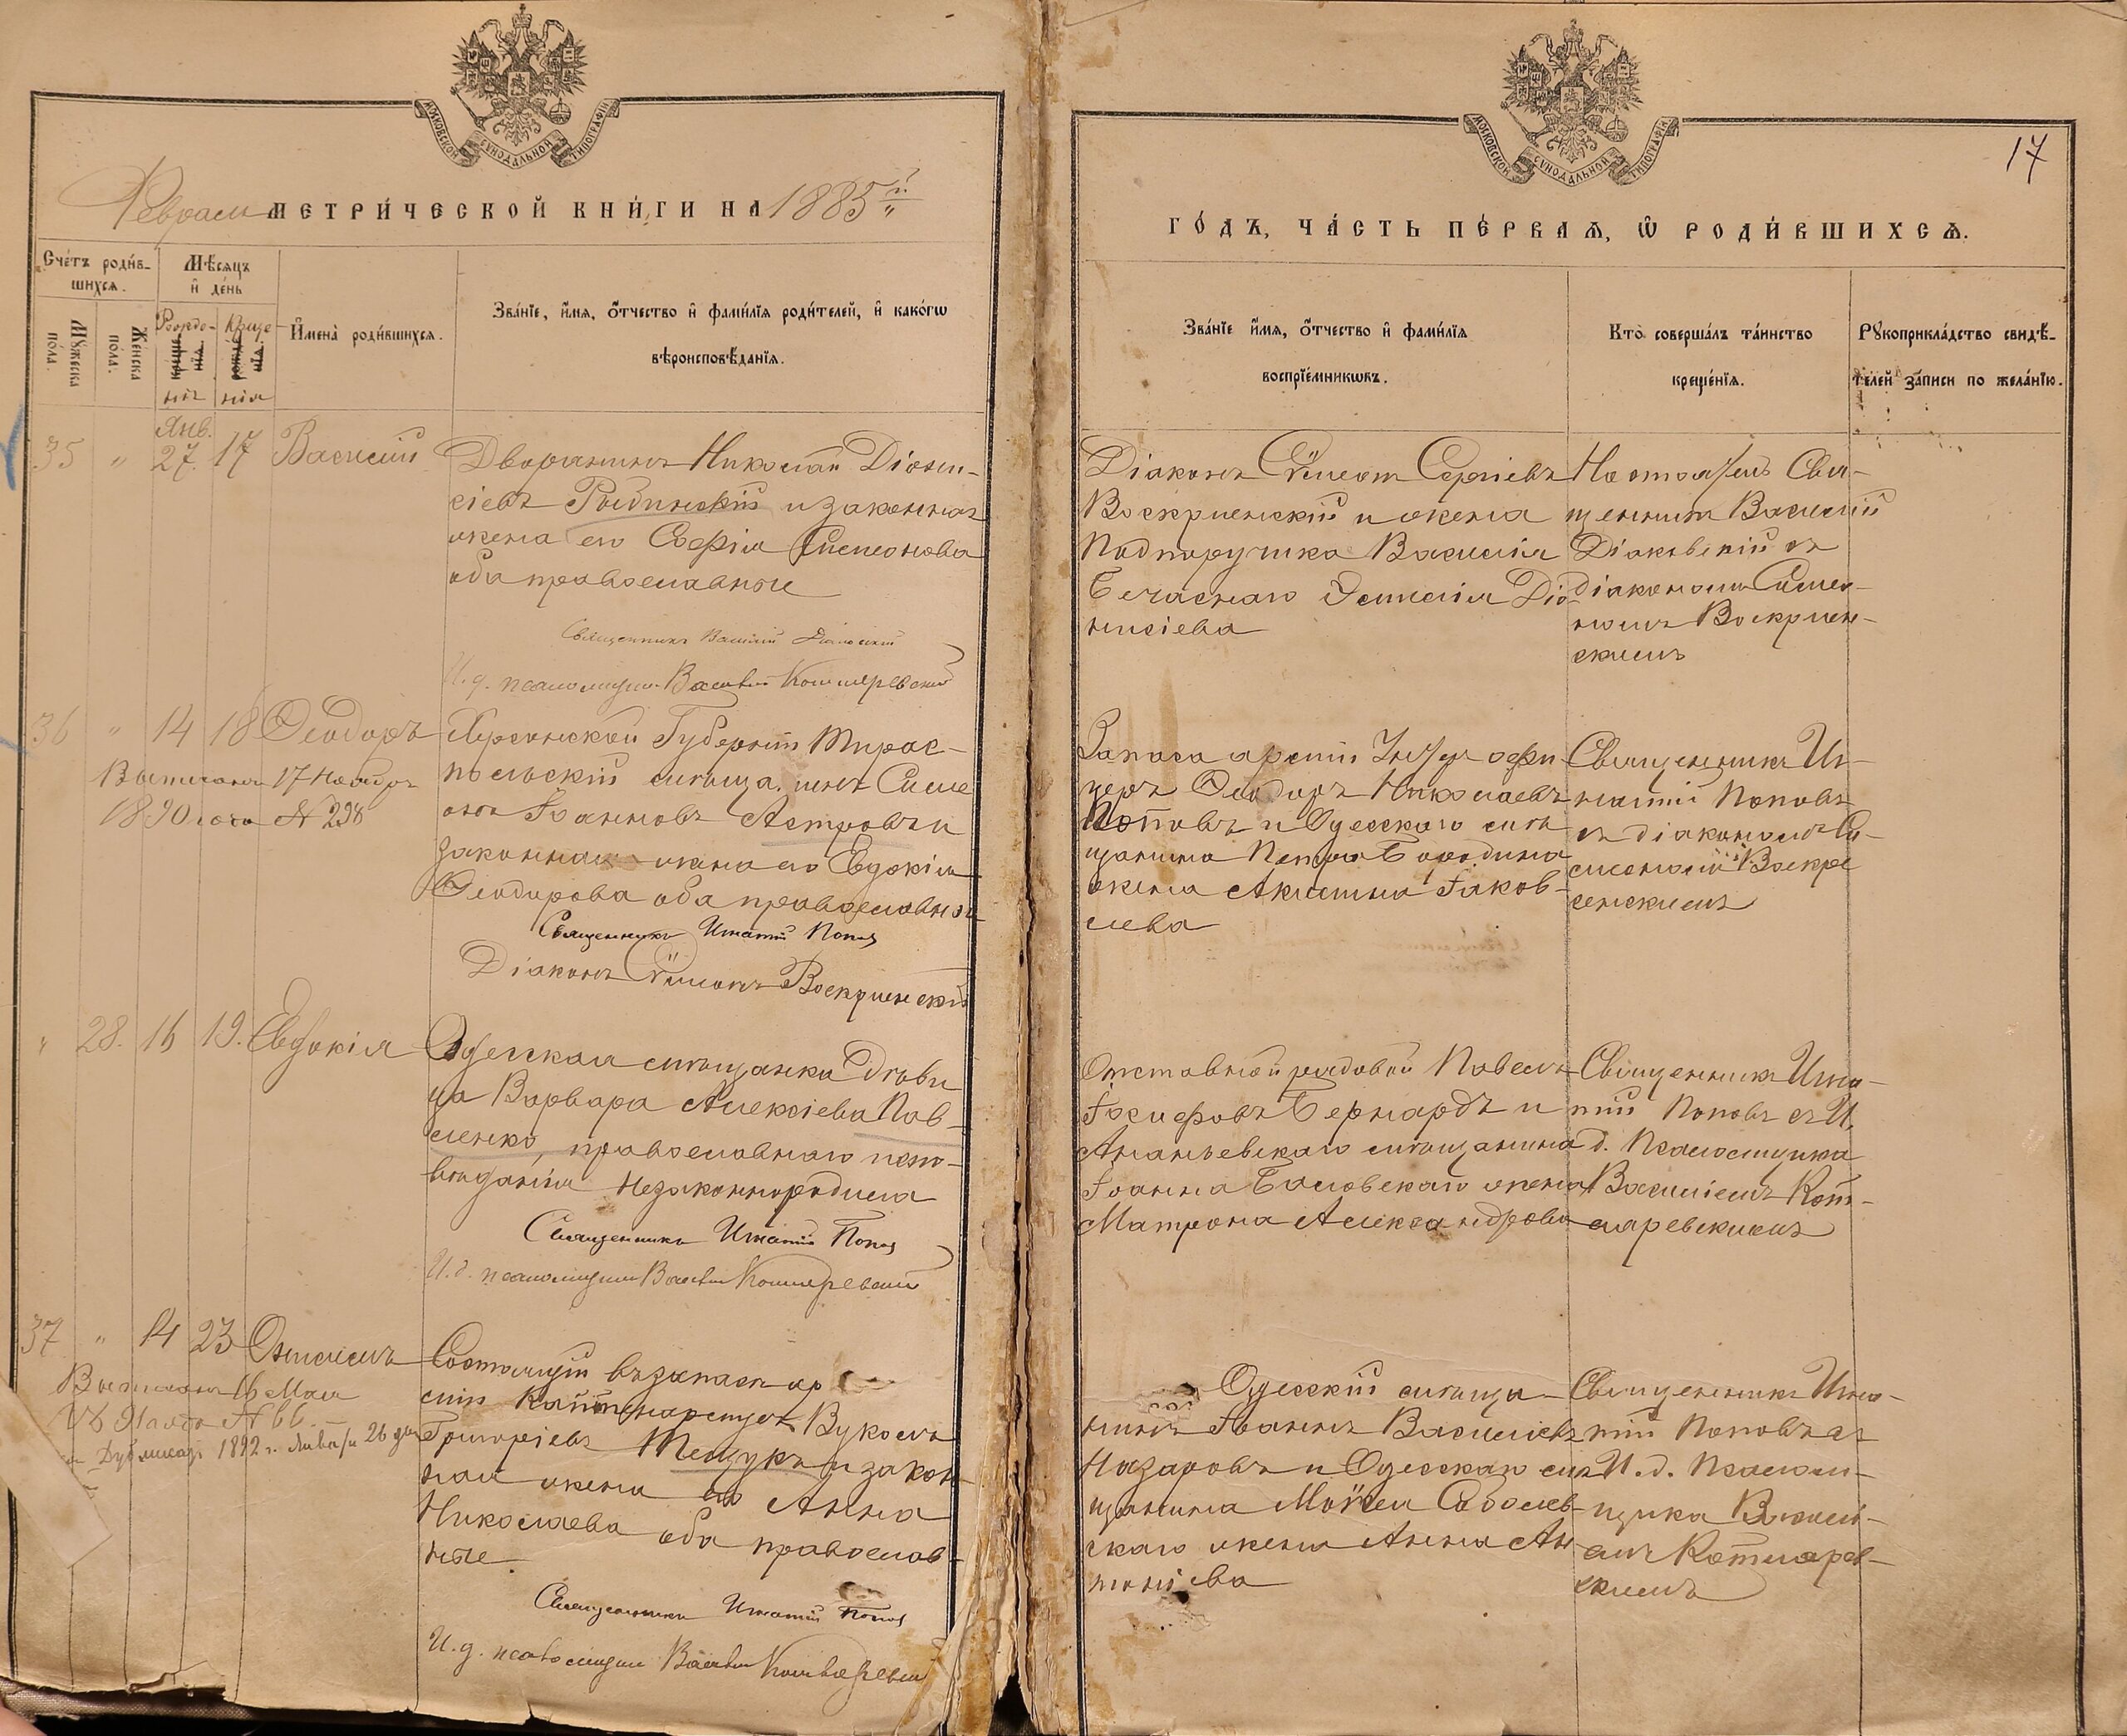 МОСКОВСКОЙ СУНОДАЛЬНОЙ ТИПОГРАФІИ
Февраль МЕТРИ́ЧЕСКОЙ КНИ́ГИ НА 1885й
Сче́тъ роди́в-
шихся.
Мѣсяцъ
и҆ де́нь
Мꙋ́жеска по́ла.
Же́нска по́ла.
Рожде-
нія
Креще-
нія
И҆мена̀ роди́вшихся.
Зва́нїе, и҆́мя, ѻ҆́тчество и҆ фами́лїя роди́телей, и҆ како́гѡ
вѣроисповѣ́данїя.
Янв.
35 " 27. 17 Василій
Дворянинъ Николай Діони-
сіевъ Рыдинскій и законная
жена его Софія Симеонова
оба православные
Священникъ Василій Діаковскій
И. д. псаломщика Василій Котляревскій
36 " 14 18 Ѳеодоръ
Выписанъ 17 Ноября
1890 года № 238
Херсонской Губерніи Тирас-
польскій мѣщанинъ Симе
онъ Іоанновъ Астровъ и
законная жена его Евдокія
Ѳеодорова оба православные
Священникъ Игнатій Попов
Діаконъ Симеонъ Воскресенскій
" 28. 16 19. Евдокія
Одесская мѣщанка Дѣви
ца Варвара Алексіева Пав-
ленко, православнаго испо-
вѣданія незаконнородила
Священникъ Игнатій Попов
И. д. псаломщика Василій Котляревскій
37 " 14 23 Онисимъ
Выписанъ 16 Мая
№ 66.
1892 г. Января 26 дня
Состоящій въ запасѣ ар
міи Каптенармусъ Вуколъ
Григоріевъ Тещукъ и закон-
ная жена его Анна
Николаева оба православ-
ные
Священникъ Игнатій Попов
И. д. псаломщика Василій Котляревскій
МОСКОВСКОЙ СУНОДАЛЬНОЙ ТИПОГРАФІИ
17
ГО́ДЪ, ЧА́СТЬ ПЕ́РВАѦ, Ѽ РОДИ́ВШИХСѦ.
Зва́нїе и҆́мя, ѻ҆́тчество и҆ фами́лїя
воспрїе́мникѡвъ.
Кто̀ соверша́лъ та́инство
креще́нїя.
Рꙋкоприкла́дство свидѣ́-
телей за́писи по жела́нїю.
Діаконъ Симеон Сергіевъ
Воскресенскій и жена
Подпоручика Василія
Бечаснаго Эмилія Діо-
нисіева
Настоятель Свя-
щенникъ Василій
Діаковскій съ
діакономъ Симео-
номъ Воскресен-
скимъ
Запаса арміи Унтер офи
церъ Ѳеодоръ Николаевъ
Поповъ и Одесскаго мѣ
щанина Петра Бородина
жена Акилина Іаков-
лева
Священникъ Иг-
натій Поповъ
съ діакономъ Си-
меономъ Воскре
сенскимъ
Отставной рядовой Павелъ
Іосифовъ Бернардъ и
Ананьевскаго мѣщанина
Іоанна Баловскаго жена
Матрона Александрова
Священникъ Игна-
тій Поповъ съ И.
д. Псаломщика
Василіемъ Кот-
ляревскимъ
Одесскій мѣща-
нинъ Іоаннъ Василіевъ
Назаровъ и Одесскаго мѣ
щанина Моисея Соболев-
скаго жена Анна Ан-
тоніева
Священникъ Игна-
тій Поповъ съ
И. д. Псалом-
щика Василі-
емъ Котлярев-
скимъ